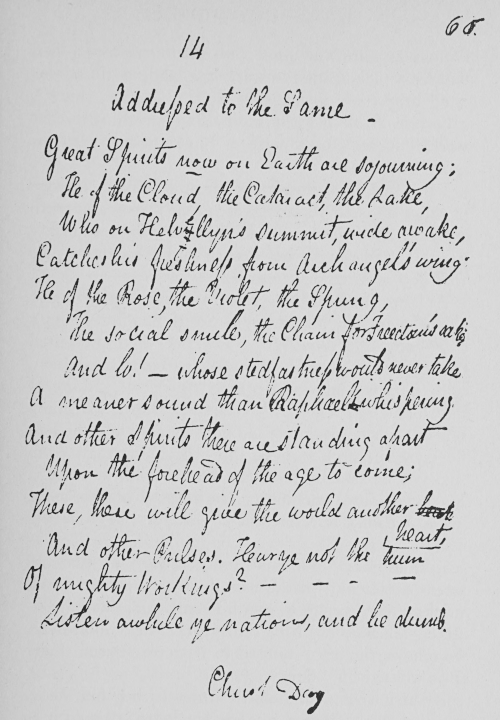 65.
14
Addressed to the Same -
Great Spirits now on Earth are sojourning;
He of the Cloud, the Cataract, the Lake,
Who on Helvellyn's summit, wide awake,
Catches his freshness from Archangel's wing:
He of the Rose, the Violet, the Spring,
The social smile, the Chain for Freedom's sake;
And lo! — whose stedfastness would never take
A meaner sound than Raphael's whispering.
And other Spirits there are standing apart
Upon the forehead of the age to come;
These, these will give the world another
heart,
And other Pulses. Hear ye not the hum
Of mighty Workings? — - - —
Listen awhile ye nations, and be dumb.
Christ Day